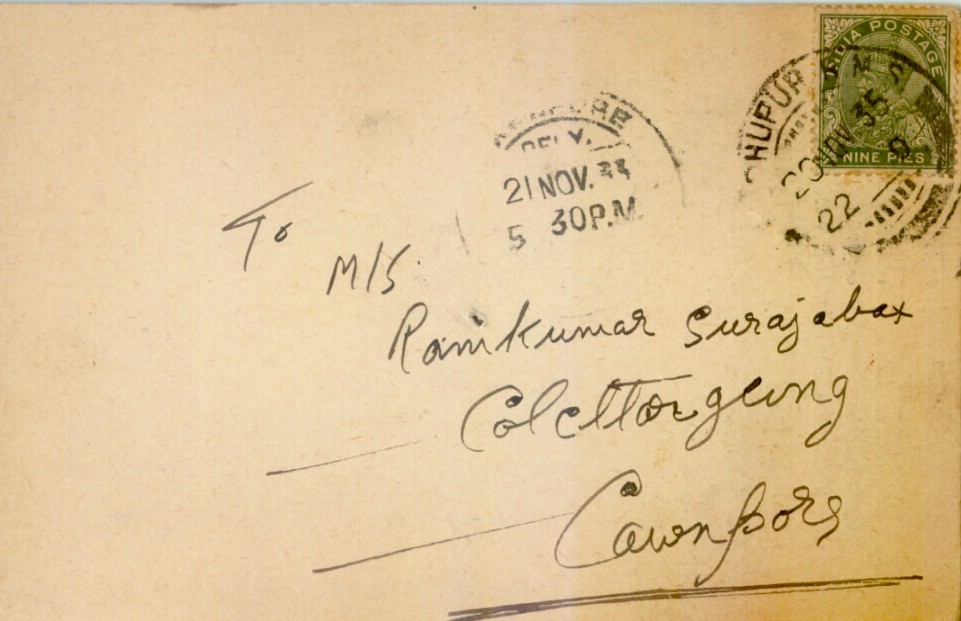 INDIA POSTAGE
NINE PIES
HUPUR R.M.S.
20 NOV 35
22
DELY.
21 NOV. 35
5 30 P.M.
To
M/S.
Ramkumar Surajabax
Colettorgung
Cawnpore